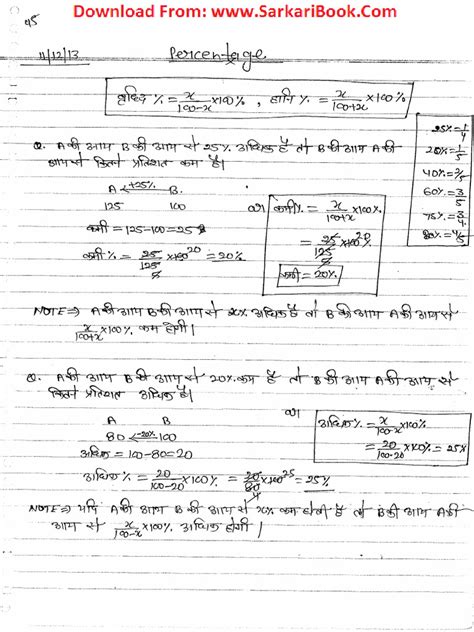 Download From: www.SarkariBook.Com
45
11/12/13
Percentage
वृद्धि % = x/100-x ×100% , हानि % = x/100+x ×100%
25% = 1/4
20% = 1/5
40% = 2/5
60% = 3/5
75% = 3/4
80% = 4/5
Q. A की आय B की आय से 25% अधिक है तो B की आय A की
आय से कितने प्रतिशत कम है।
A ←+25% B
125 100
कमी = 125-100 = 25
कमी % = 25/125 ×100 20 = 20%
5
or
कमी % = x/100+x ×100%
= 25/125 ×100 20
5
कमी = 20%
NOTE ⇒ A की आय B की आय से x% अधिक है तो B की आय A की आय से
x/100+x ×100% कम होगी।
Q. A की आय B की आय से 20% कम है तो B की आय A की आय से
कितने प्रतिशत अधिक है।
A B
80 ←-20% 100
अधिक = 100-80 = 20
अधिक % = 20/100-20 ×100% = 20/80 ×100 25 = 25%
4
or
अधिक % = x/100-x ×100%
= 20/100-20 ×100% = 25%
NOTE ⇒ यदि A की आय B की आय से x% कम होती है तो B की आय A की
आय से x/100-x ×100% अधिक होगी।